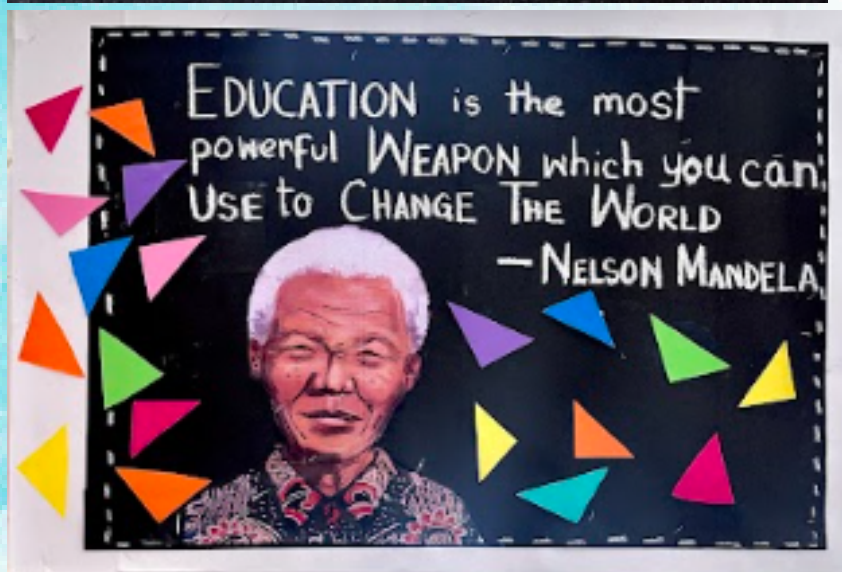 EDUCATION is the most
powerful WEAPON which you can
USE to CHANGE THE WORLD
– NELSON MANDELA